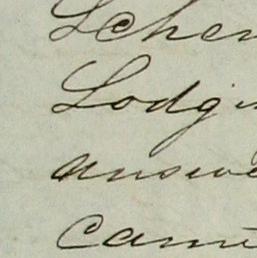 Schen
Lodgin
answe
came